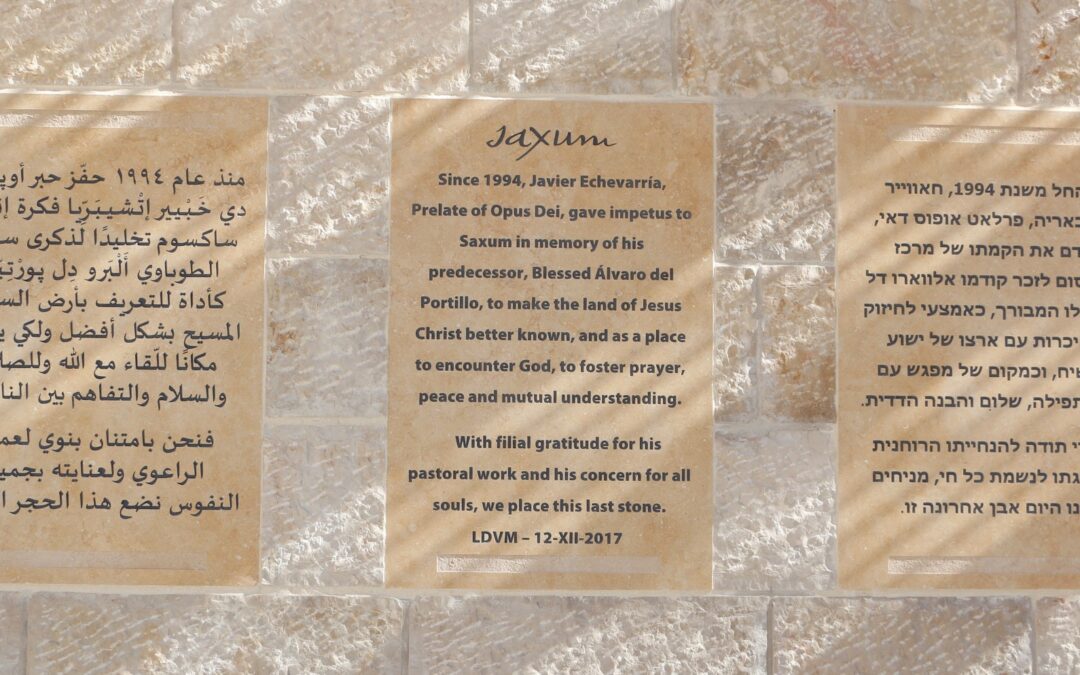 منذ عام ١٩٩٤ حفّز حبر
دي خَبْيير إتْشيبَرّيا فكرة
ساكسوم تخليدًا لذكرى
الطوباوي أَلْبَرو دِل
كأداة للتعريف بأرض
المسيح بشكل أفضل ولكي
مكانًا للّقاء مع الله
والسلام والتفاهم بين
فنحن بامتنان بنوي
الراعوي ولعنايته
النفوس نضع هذا الحجر
saxum
Since 1994, Javier Echevarría,
Prelate of Opus Dei, gave impetus to
Saxum in memory of his
predecessor, Blessed Álvaro del
Portillo, to make the land of Jesus
Christ better known, and as a place
to encounter God, to foster prayer,
peace and mutual understanding.
With filial gratitude for his
pastoral work and his concern for all
souls, we place this last stone.
LDVM – 12-XII-2017
החל משנת 1994, חאווייר
פרלאט אופוס דאי,
את הקמתו של מרכז
לזכר קודמו אלווארו דל
המבורך, כאמצעי לחיזוק
עם ארצו של ישוע
וכמקום של מפגש עם
שלום והבנה הדדית.
תודה להנחייתו הרוחנית
לנשמת כל חי, מניחים
היום אבן אחרונה זו.